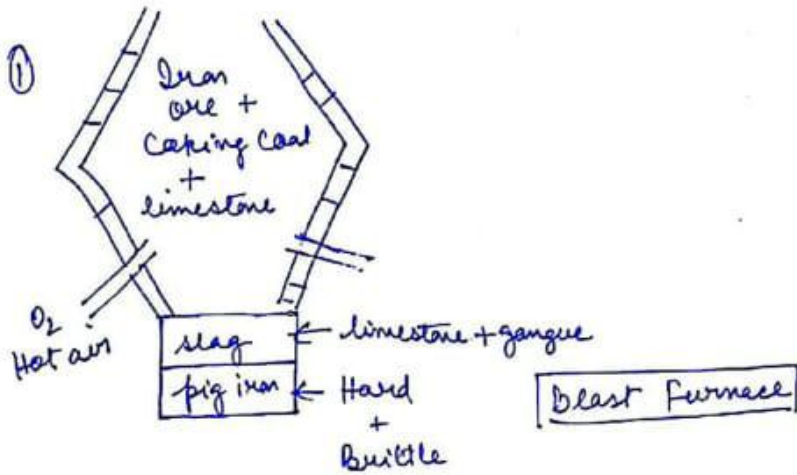 ①
Iron
ore +
Coking Coal
+
limestone
O₂
Hot air
slag
limestone + gangue
pig iron
Hard
+
Brittle
Blast Furnace